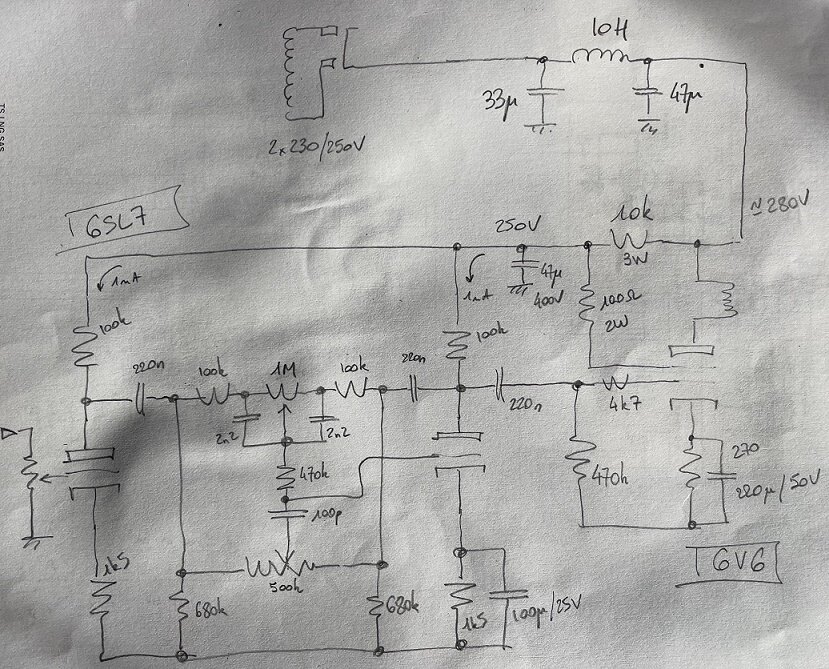 10H
33µ
47µ
2x230/250V
TS LNG SAS
6SL7
≃280V
250V
10k
3W
1mA
1mA
47µ
400V
100Ω
2W
100k
100k
220n
100k
1M
100k
220n
220n
4k7
2n2
2n2
470k
470k
270
220µ/50V
100p
6V6
1k5
500k
680k
680k
1k5
100µ/25V